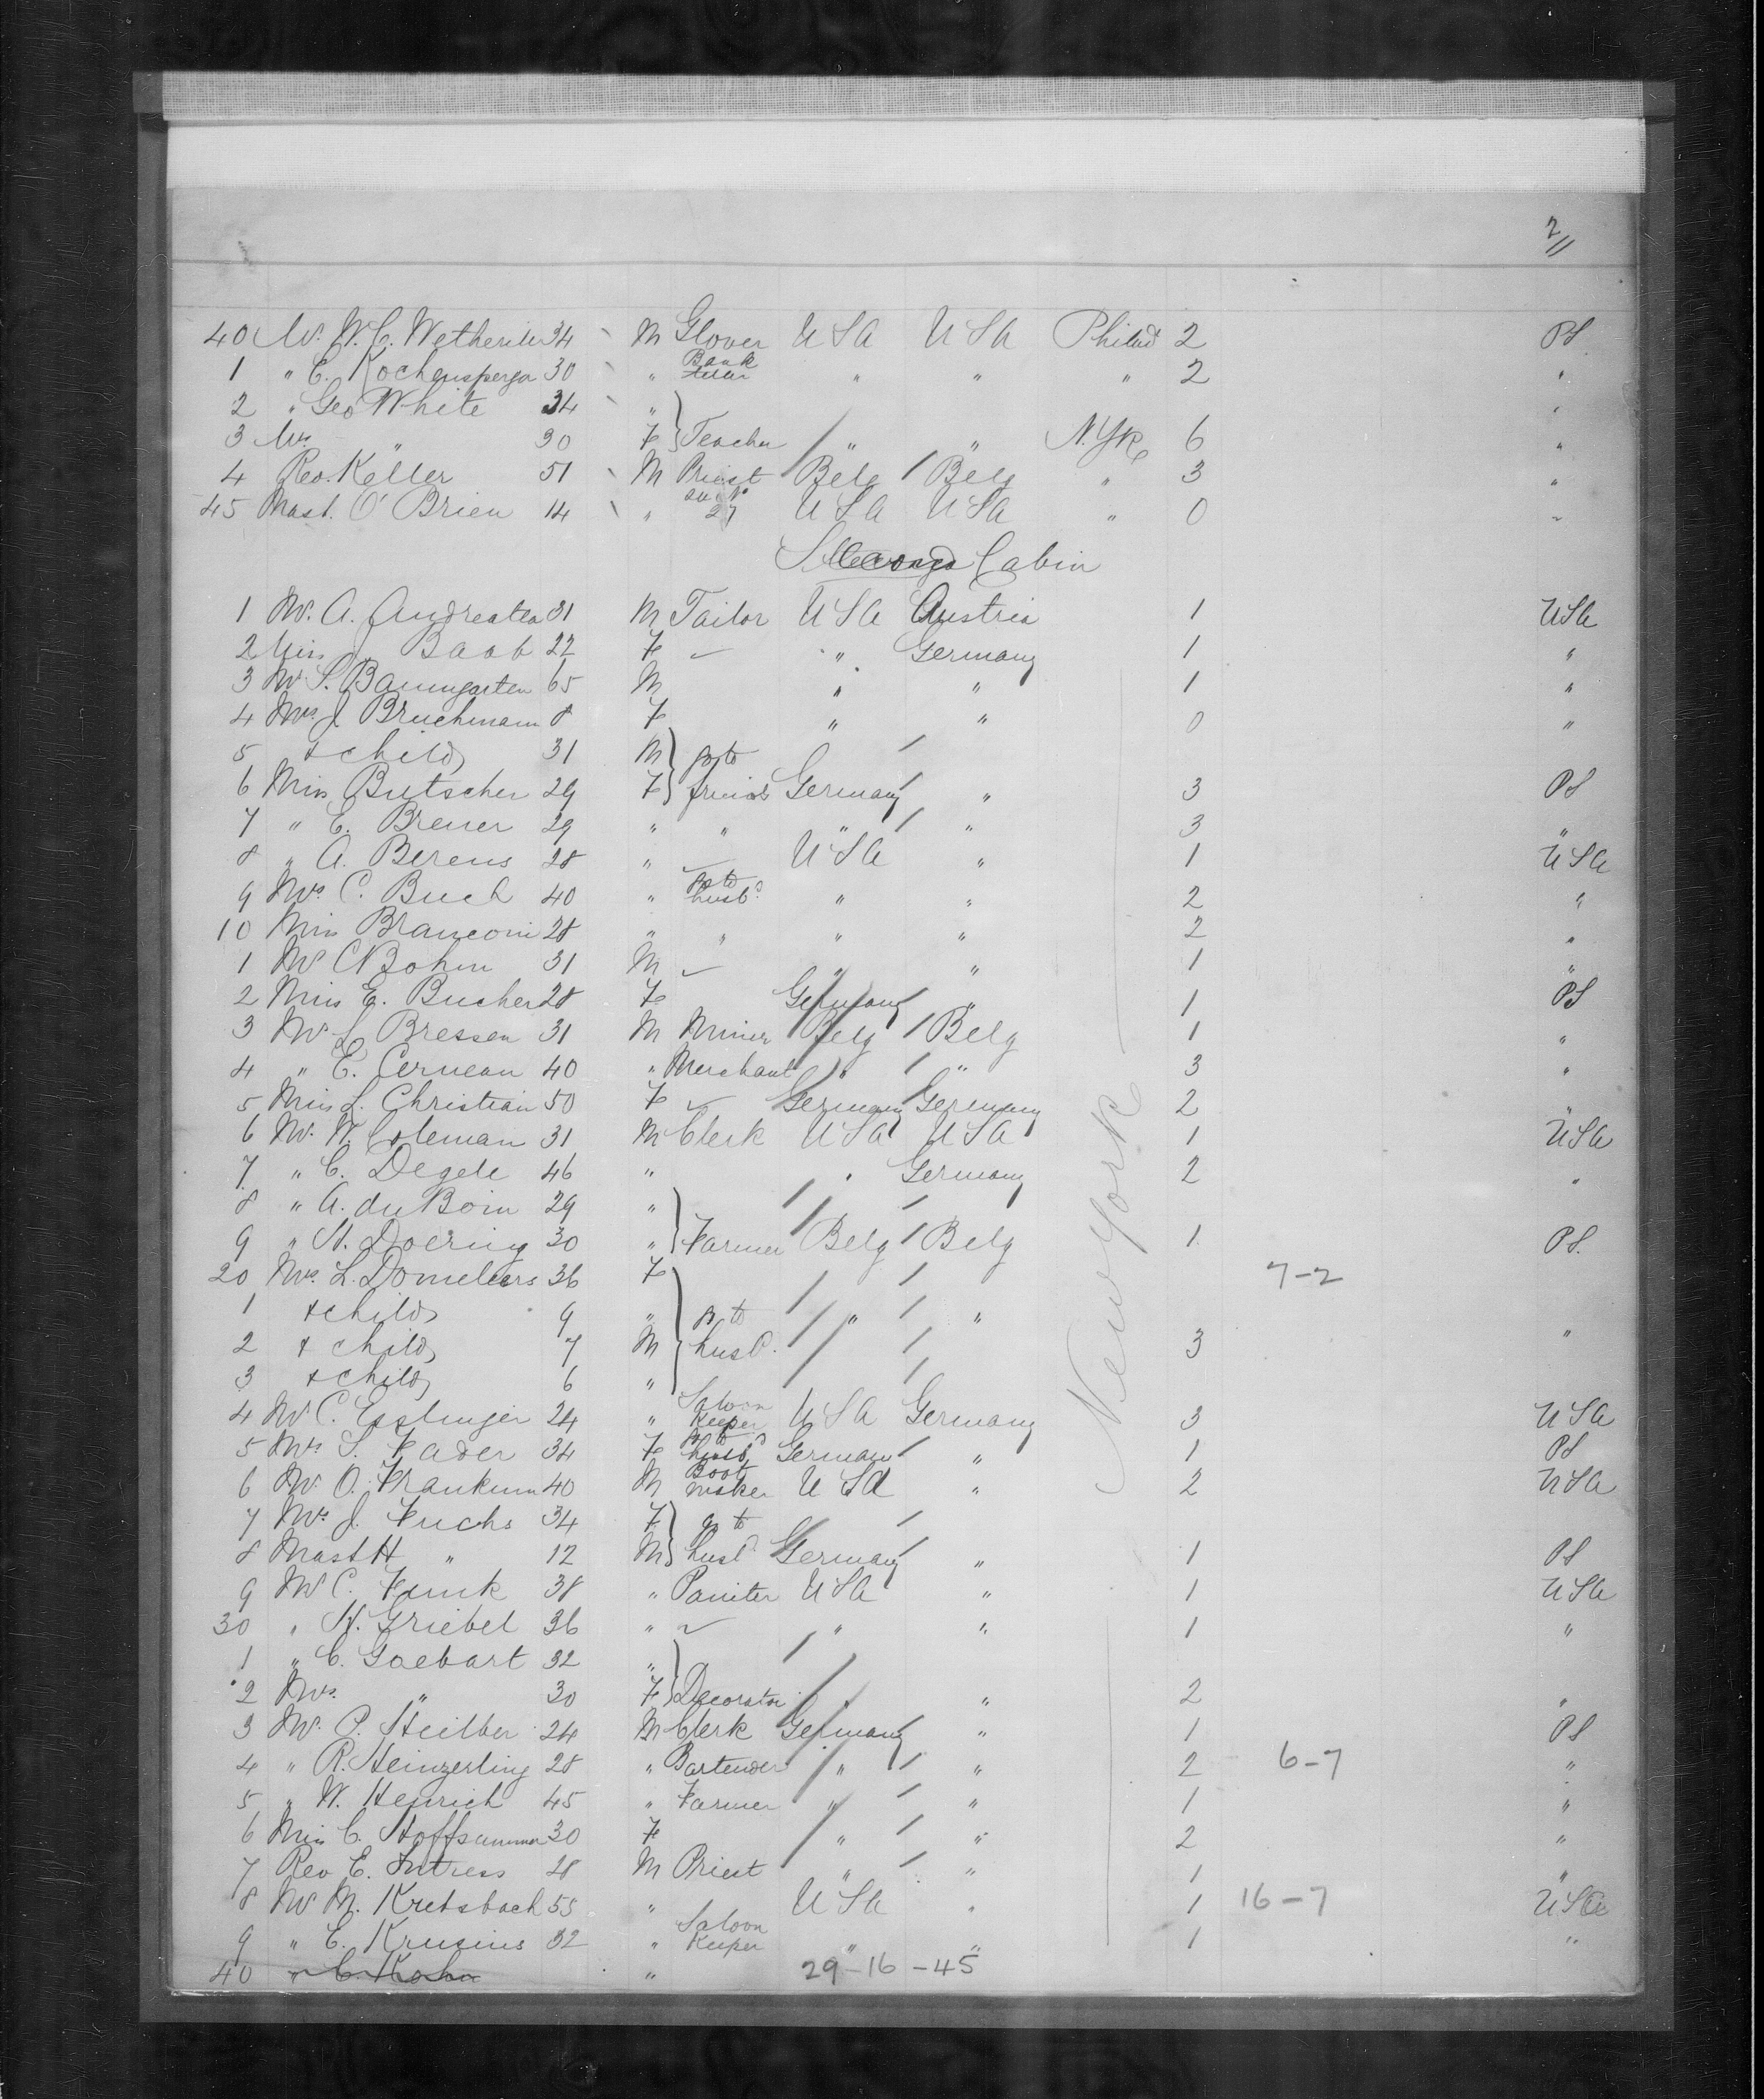 2 //
40 Mr. W. C. 34 M Glover USA USA Philad 2 PS
1 " C. Kochensperger 30 " Bank teller " " " 2 "
2 " Geo White 34 " "
3 Mrs " 30 F Teacher " " N.Yk 6 "
4 Rev. Keller 51 M Priest Belg Belg " 3 "
45 Mast. O'Brien 14 " 27 USA USA " 0 "
Second Cabin
1 Mr. A. 31 M Tailor USA Austria 1 USA
2 Miss J. Baab 22 F " Germany 1 "
3 Mr S. Baumgarten 65 M " " 1 "
4 Mrs J. Bruchmann 8 F " " 0 "
5 + child 31 M go to
6 Miss Butscher 29 F friends Germany " 3 PS
7 " E. Brener 29 " " " " 3 "
8 " A. Berens 28 " USA " 1 USA
9 Mrs C. Buch 40 " go to husbd " " 2 "
10 Miss Branconi 28 " " " " 2 "
1 Mr C Bohm 31 M " " 1 "
2 Miss E. Bucher 28 F Germany " 1 PS
3 Mr L. Bressen 31 M Miner Belg Belg 1 "
4 " E. Cerneau 40 " Merchant " " 3 "
5 Miss L. Christian 50 F Germany Germany 2 "
6 Mr. W. Coleman 31 M Clerk USA USA 1 USA
7 " C. Degele 46 " " Germany 2 "
8 " A. du Bois 29 "
9 " H. Doering 30 " Farmer Belg Belg 1 PS.
20 Mrs. L. 36 F 7-2
1 + child 9 " go to " "
2 + child 7 M husbd. 3 "
3 + child 6 "
4 Mr C. Esslinger 24 " Saloon Keeper USA Germany 3 USA
5 Mrs S. Fader 34 F go to husbd German " 1 PS
6 Mr. O. 40 M Boot maker USA " 2 USA
7 Mrs J. Fuchs 34 F go to
8 Mast H " 12 M husbd Germany " 1 PS
9 Mr C. Funk 38 " Painter USA " 1 USA
30 " H. Griebel 36 " " " 1 "
1 " C. Goebart 32 "
2 Mrs. " 30 F Decorator " " 2 "
3 Mr. P. Heilber 24 M Clerk Germany " 1 PS
4 " R. Heinzerling 28 " Bartender " " 2 6-7 "
5 " W. Henrich 45 " Farmer " " 1 "
6 Miss C. Hoffsummer 30 F " " 2 "
7 Rev E. Intress 28 M Priest " " 1 "
8 Mr M. Kretsbach 55 " USA " 1 16-7 USA
9 " E. Krusius 32 " Saloon Keeper " " 1 "
40 " C. Kohn " 29-16-45
New York